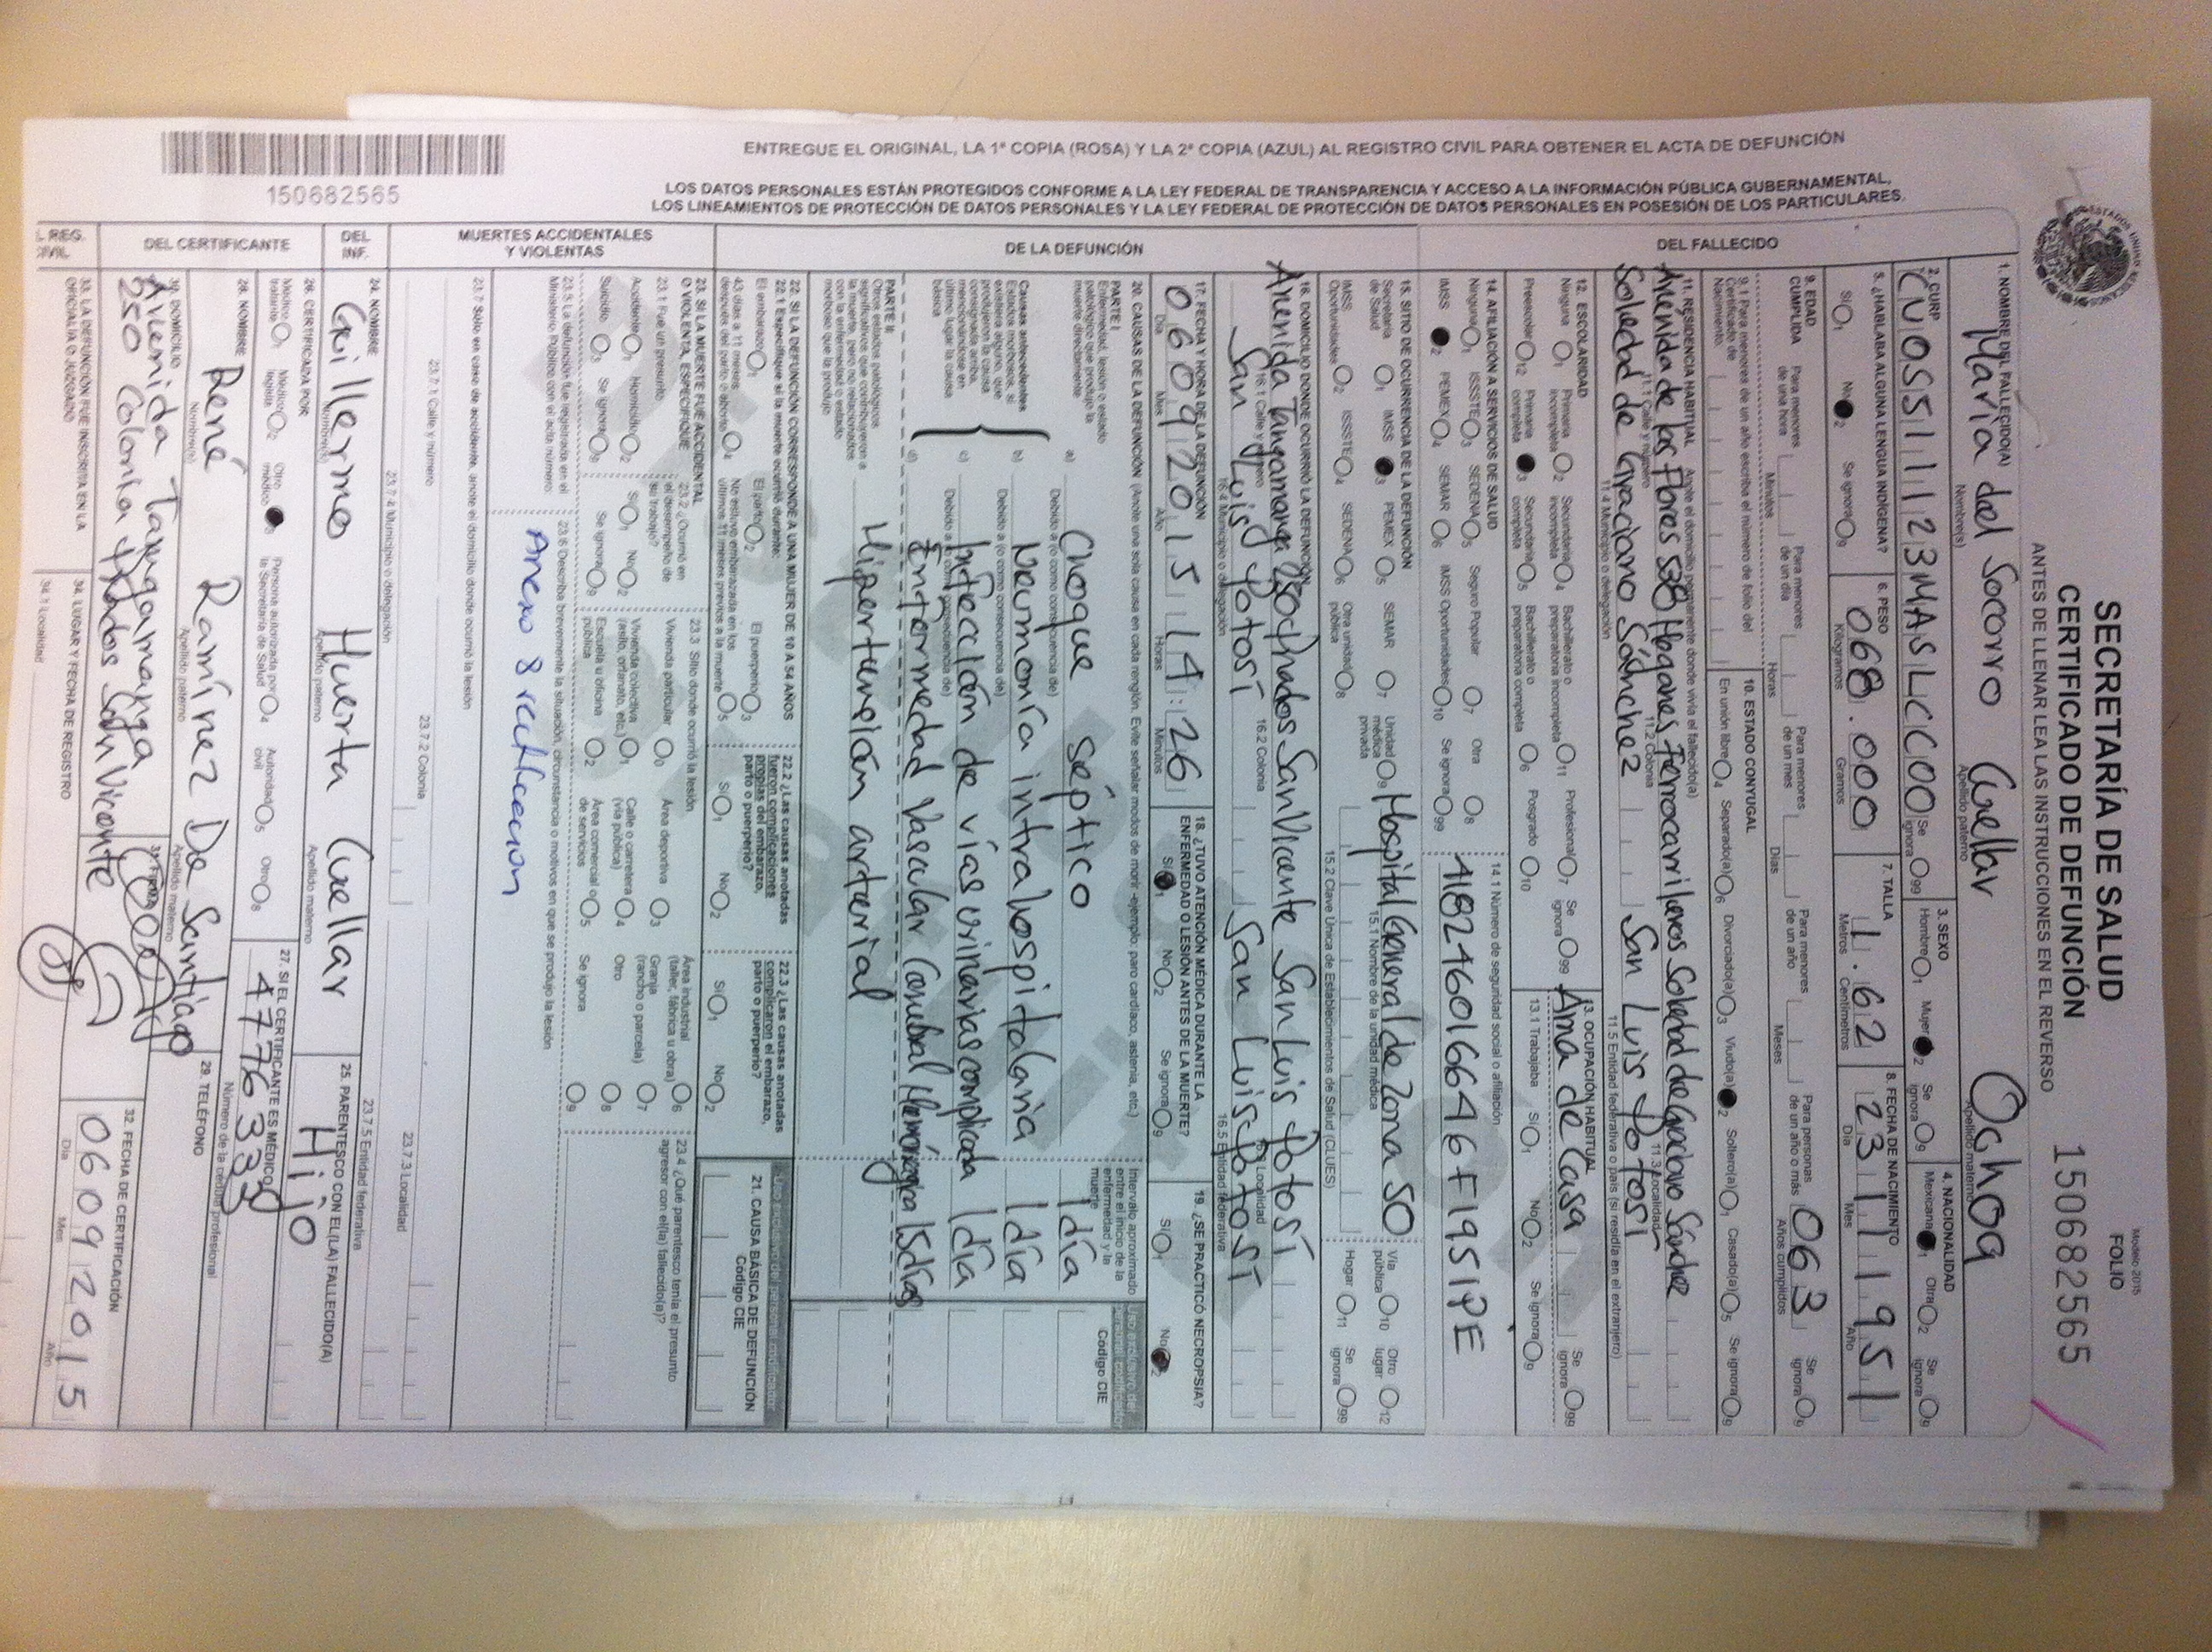 Modelo 2015
SECRETARÍA DE SALUD
FOLIO
CERTIFICADO DE DEFUNCIÓN
150682565
ANTES DE LLENAR LEA LAS INSTRUCCIONES EN EL REVERSO
ENTREGUE EL ORIGINAL, LA 1ª COPIA (ROSA) Y LA 2ª COPIA (AZUL) AL REGISTRO CIVIL PARA OBTENER EL ACTA DE DEFUNCIÓN
LOS DATOS PERSONALES ESTÁN PROTEGIDOS CONFORME A LA LEY FEDERAL DE TRANSPARENCIA Y ACCESO A LA INFORMACIÓN PÚBLICA GUBERNAMENTAL,
LOS LINEAMIENTOS DE PROTECCIÓN DE DATOS PERSONALES Y LA LEY FEDERAL DE PROTECCIÓN DE DATOS PERSONALES EN POSESIÓN DE LOS PARTICULARES.
150682565
DEL FALLECIDO
1. NOMBRE DEL FALLECIDO(A) María del Socorro Cuellar Ochoa
Nombre(s) Apellido paterno Apellido materno
2. CURP CUOS511123MASLCC00 Se ignora 99 3. SEXO Hombre 1 Mujer 2 Se ignora 9 4. NACIONALIDAD Mexicana 1 Otra 2 Se ignora 9
5. ¿HABLABA ALGUNA LENGUA INDÍGENA? SÍ 1 No 2 Se ignora 9 6. PESO 068.000 Kilogramos Gramos 7. TALLA 1.62 Metros Centímetros 8. FECHA DE NACIMIENTO 23 11 1951 Día Mes Año
9. EDAD CUMPLIDA Para menores de una hora Minutos Para menores de un día Horas Para menores de un mes Días Para menores de un año Meses Para personas de un año o más 063 Años cumplidos Se ignora 9
9.1 Para menores de un año escriba el número de folio del Certificado de Nacimiento 10. ESTADO CONYUGAL En unión libre 4 Separado(a) 6 Divorciado(a) 3 Viudo(a) 2 Soltero(a) 1 Casado(a) 5 Se ignora 9
11. RESIDENCIA HABITUAL Anote el domicilio permanente donde vivía el fallecido(a)
Avenida de las Flores 538 Hogares Ferrocarrileros Soledad de Graciano Sánchez
11.1 Calle y número 11.2 Colonia 11.3 Localidad
Soledad de Graciano Sánchez San Luis Potosí
11.4 Municipio o delegación 11.5 Entidad federativa o país (si residía en el extranjero)
12. ESCOLARIDAD Ninguna 1 Primaria incompleta 2 Secundaria incompleta 4 Bachillerato o preparatoria incompleta 11 Profesional 7 Se ignora 99
Preescolar 12 Primaria completa 3 Secundaria completa 5 Bachillerato o preparatoria completa 6 Posgrado 10
13. OCUPACIÓN HABITUAL Ama de Casa Se ignora 99
13.1 Trabajaba Sí 1 No 2 Se ignora 9
14. AFILIACIÓN A SERVICIOS DE SALUD
Ninguna 1 ISSSTE 3 SEDENA 5 Seguro Popular 7 Otra 8
IMSS 2 PEMEX 4 SEMAR 6 IMSS Oportunidades 10 Se ignora 99
14.1 Número de seguridad social o afiliación
4182460166 46F1951PE
15. SITIO DE OCURRENCIA DE LA DEFUNCIÓN
Secretaría de Salud 1 IMSS 3 PEMEX 5 SEMAR 7 Unidad médica privada 9 Hospital General de Zona 50 Vía pública 10 Otro lugar 12
15.1 Nombre de la unidad médica
IMSS Oportunidades 2 ISSSTE 4 SEDENA 6 Otra unidad pública 8 Hogar 11 Se ignora 99
15.2 Clave Única de Establecimientos de Salud (CLUES)
16. DOMICILIO DONDE OCURRIÓ LA DEFUNCIÓN
Avenida Tangamanga 250 Prados San Vicente San Luis Potosí
16.1 Calle y número 16.2 Colonia Localidad
San Luis Potosí San Luis Potosí
16.4 Municipio o delegación 16.5 Entidad federativa
DE LA DEFUNCIÓN
17. FECHA Y HORA DE LA DEFUNCIÓN
06 09 2015 14:26
Día Mes Año Horas Minutos
18. ¿TUVO ATENCIÓN MÉDICA DURANTE LA ENFERMEDAD O LESIÓN ANTES DE LA MUERTE?
Sí 1 No 2 Se ignora 9
19. ¿SE PRACTICÓ NECROPSIA?
Sí 1 No 2
20. CAUSAS DE LA DEFUNCIÓN (Anote una sola causa en cada renglón. Evite señalar modos de morir -ejemplo: paro cardiaco, astenia, etc.)
Intervalo aproximado entre el inicio de la enfermedad y la muerte
Código CIE
PARTE I
Enfermedad, lesión o estado patológico que produjo la muerte directamente
a) Choque séptico 1 día
Debido a (o como consecuencia de)
Causas antecedentes
Estados morbosos, si existiera alguno, que produjeron la causa consignada arriba, mencionándose en último lugar la causa básica
b) Neumonía intrahospitalaria 1 día
Debido a (o como consecuencia de)
c) Infección de vías urinarias complicada 1 día
Debido a (o como consecuencia de)
d) Enfermedad Vascular Cerebral Hemorrágica 15 días
PARTE II
Otros estados patológicos significativos que contribuyeron a la muerte, pero no relacionados con la enfermedad o estado morboso que la produjo
Hipertensión arterial
22. SI LA DEFUNCIÓN CORRESPONDE A UNA MUJER DE 10 A 54 AÑOS
22.1 Especifique si la muerte ocurrió durante:
El embarazo 1 El parto 2 El puerperio 3
43 días a 11 meses después del parto o aborto 4 No estuvo embarazada en los últimos 11 meses previos a la muerte 5
22.2 ¿Las causas anotadas fueron complicaciones propias del embarazo, parto o puerperio?
Sí 1 No 2
22.3 ¿Las causas anotadas complicaron el embarazo, parto o puerperio?
Sí 1 No 2
21. CAUSA BÁSICA DE DEFUNCIÓN
Código CIE
MUERTES ACCIDENTALES Y VIOLENTAS
23. SI LA MUERTE FUE ACCIDENTAL O VIOLENTA, ESPECIFIQUE
23.1 Fue un presunto
Accidente 1 Homicidio 2
Suicidio 3 Se ignora 9
23.2 ¿Ocurrió en el desempeño de su trabajo?
Sí 1 No 2
Se ignora 9
23.3 Sitio donde ocurrió la lesión
Vivienda particular 0 Área deportiva 3 Área industrial (taller, fábrica u obra) 6
Vivienda colectiva (asilo, orfanato, etc.) 1 Calle o carretera (vía pública) 4 Granja (rancho o parcela) 7
Escuela u oficina pública 2 Área comercial o de servicios 5 Otro 8
Se ignora 9
23.4 ¿Qué parentesco tenía el presunto agresor con el(la) fallecido(a)?
23.5 La defunción fue registrada en el Ministerio Público con el acta número:
23.6 Describa brevemente la situación, circunstancia o motivos en que se produjo la lesión
Anexo 8 ratificacion
23.7 Sólo en caso de accidente, anote el domicilio donde ocurrió la lesión
23.7.1 Calle y número 23.7.2 Colonia 23.7.3 Localidad
23.7.4 Municipio o delegación 23.7.5 Entidad federativa
DEL INF.
24. NOMBRE Guillermo Huerta Cuellar
Nombre(s) Apellido paterno Apellido materno
25. PARENTESCO CON EL(LA) FALLECIDO(A)
Hijo
DEL CERTIFICANTE
26. CERTIFICADA POR
Médico tratante 1 Médico legista 2 Otro médico 3 Persona autorizada por la Secretaría de Salud 4 Autoridad civil 5 Otro 8
27. SI EL CERTIFICANTE ES MÉDICO
4776333
Número de la cédula profesional
28. NOMBRE René Ramírez De Santiago
Nombre(s) Apellido paterno Apellido materno
29. TELÉFONO
30. DOMICILIO Avenida Tangamanga
250 Colonia Prados San Vicente
31. FIRMA
32. FECHA DE CERTIFICACIÓN
06 09 2015
Día Mes Año
33. LA DEFUNCIÓN FUE INSCRITA EN LA OFICIALÍA O JUZGADO
34. LUGAR Y FECHA DE REGISTRO
34.1 Localidad